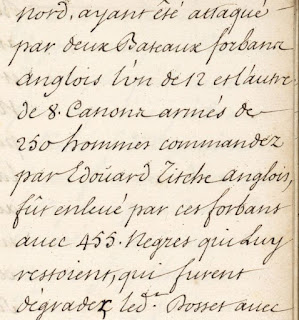 nord, ayant été attaqué
par deux Bateaux forbans
anglois l'un de 12 et l'autre
de 8. Canons armés de
250 hommes commandez
par Edoüard Titche anglois,
fût enleué par ces forbans
auec 455. Negres qui Luy
restoient, qui furent
dégradez led. Dosset auec